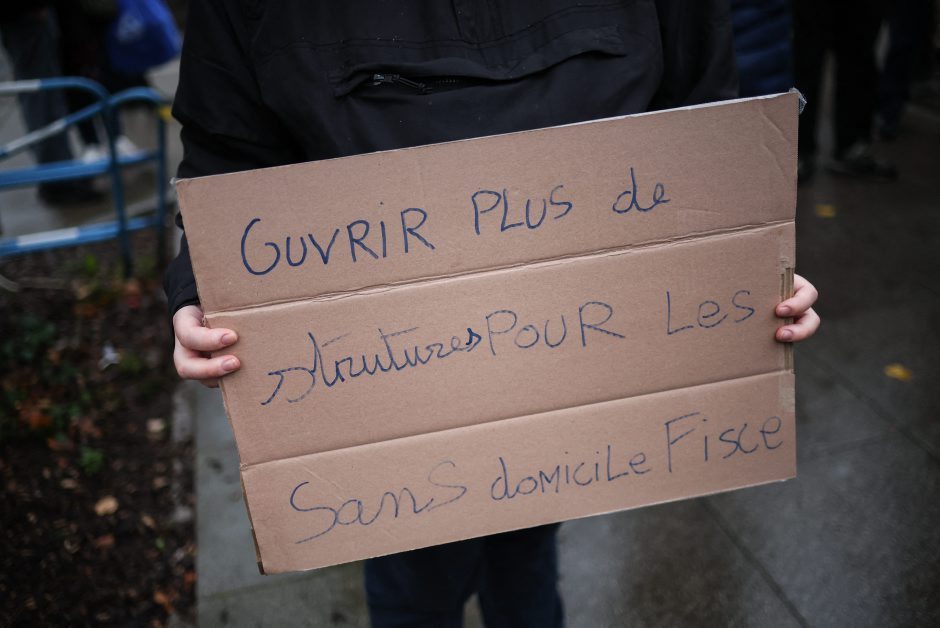 OUVRIR PLUS de
strutures POUR Les
Sans domicile Fisce